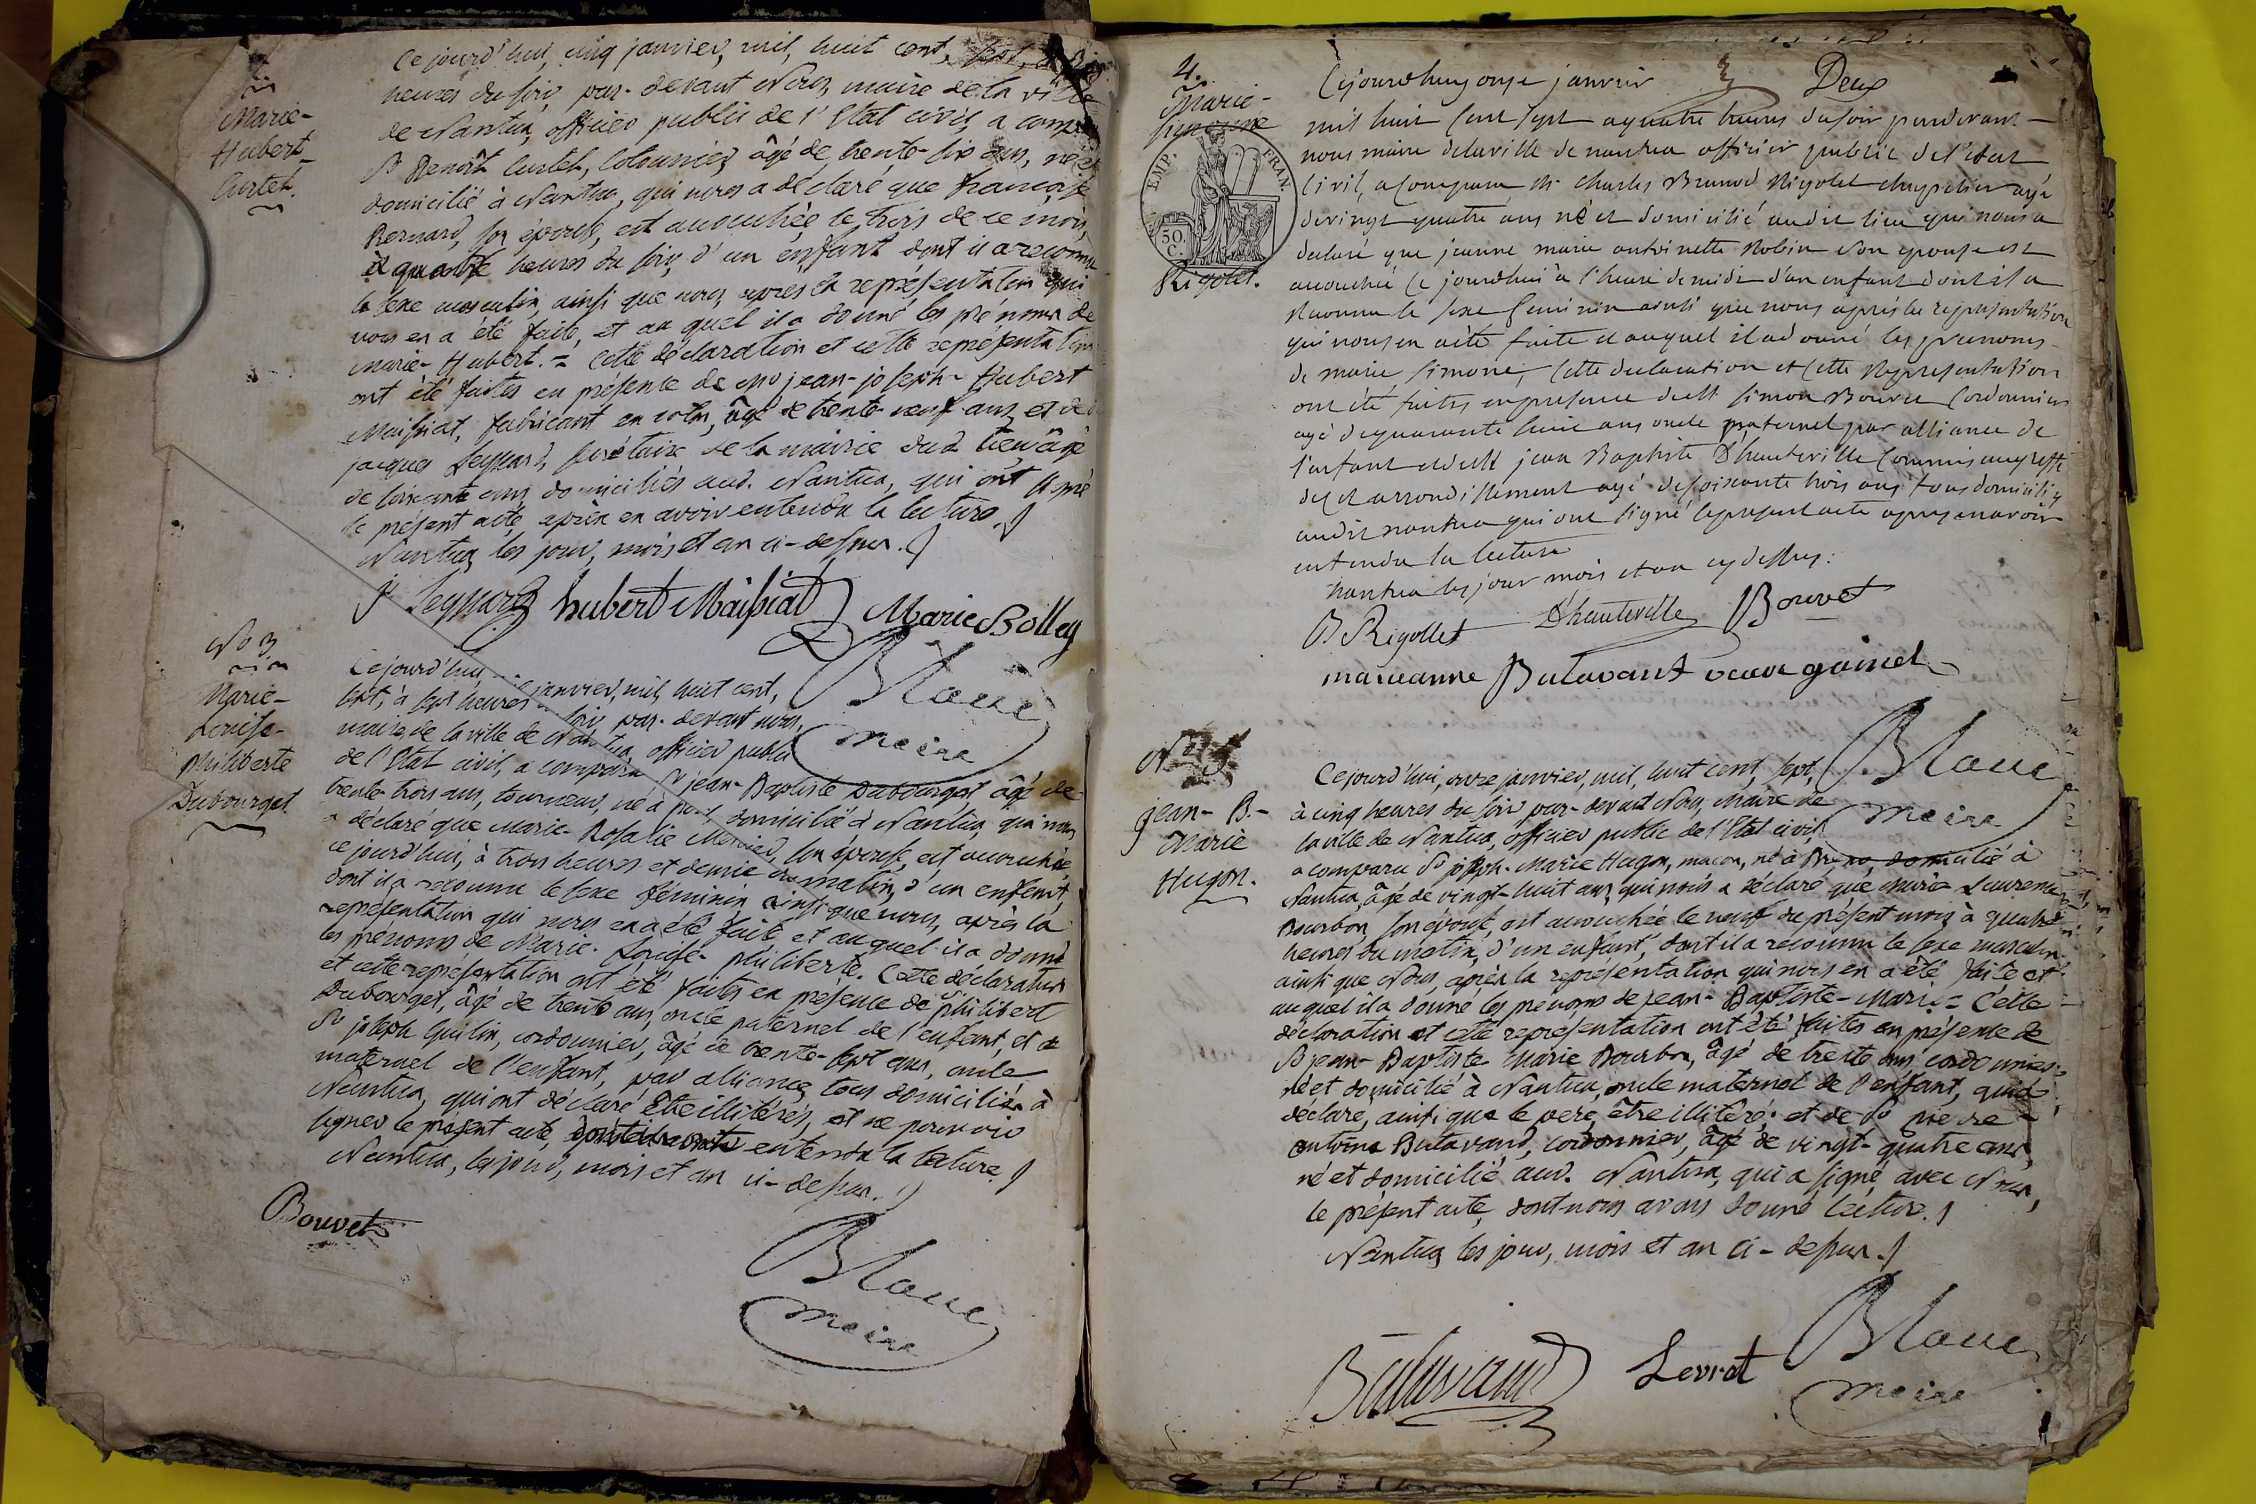 Marie-
Hubert
Curtet.
Ce jourd'hui, cinq janvier, mil, huit cent, sept,
heures du soir, par-devant Nous, maire de la ville
de Nantua, officier public de l'Etat civil, a comparu
Sr Benoît Curtet, Cotonnier, âgé de trente-six ans, né et
domicilié à Nantua, qui nous a déclaré que françoise
Bernard, son épouse, est accouchée le trois de ce mois,
à quatre heures du soir, d'un enfant dont il a reconnu
le sexe masculin, ainsi que nous, après la représentation qui
nous en a été faite, et au quel il a donné les prénoms de
Marie-Hubert. = Cette déclaration et cette représentation
ont été faites en présence de Mrs jean-joseph-Hubert
Maissiat, fabricant en coton, âgé de trente-neuf ans, et de
jacques Seyssard, secrétaire de la mairie dud. lieu âgé
de soixante ans, domiciliés aud. Nantua, qui ont signé
le présent acte, après en avoir entendu la lecture.
Nantua, les jour, mois et an ci-dessus.
J Seyssard hubert Maissiat Marie Bolley
Blanc
maire
No 3
Marie-
Louise-
philiberte
Dubourget.
Ce jourd'hui, janvier, mil, huit cent,
sept, à sept heures soir, par-devant nous,
maire de la ville de Nantua, officier public
de l'Etat civil, a comparu Sr jean-Baptiste Dubourget âgé de
trente-trois ans, tourneur, né à domicilié à Nantua qui nous
a déclaré que Marie-Rosalie Mercier, son épouse, est accouchée,
ce jourd'hui, à trois heures et demie du matin, d'un enfant,
dont il a reconnu le sexe féminin, ainsi que nous, après la
représentation qui nous en a été faite, et au quel il a donné
les prénoms de Marie-Louise-philiberte. Cette déclaration
et cette représentation ont été faites en présence de Sr philibert
Dubourget, âgé de trente ans, oncle paternel de l'enfant, et de
Sr joseph Guilin, cordonnier, âgé de trente-sept ans, oncle
maternel de l'enfant, par alliance, tous domiciliés à
Nantua, qui ont déclaré être illitérés, et ne pouvoir
signer le présent acte, entendu la lecture.
Nantua, les jour, mois et an ci-dessus.
Bouvet
Blanc
maire
Deux
4.
Marie-
Simonne
EMP. FRAN.
50 C.
Rigolet.
Cejourdhuy onze janvier
mil huit Cent sept a quatre heures du soir pardevant
nous maire de la ville de nantua officier public de l'etat
Civil, a Comparu Mr Charles Brunod Rigolet chapelier agé
de vingt quatre ans né et domicilié audit lieu qui nous a
declaré que jeanne marie antoinette Robin son epouse est
accouchée Ce jourdhui a l'heure de midi d'un enfant dont il a
Reconnu le sexe feminin ainsi que nous après la representation
qui nous en a été faite et auquel il a donné les prenoms
de marie simone, Cette declaration et Cette Representation
ont été faites en presence de Mr Simon Bouvet Cordonnier
agé de quarante huit ans oncle paternel par alliance de
l'enfant et de Mr jean Baptiste Dhauteville Commis au greffe
de cet arrondissement agé de soixante trois ans tous domiciliés
audit nantua qui ont signé le present acte apres en avoir
entendu la lecture
nantua les jour mois et an cy dessus.
B Rigollet Dhauteville Bouvet
marieanne Butavant veuve goinet
Blanc
maire
jean-B.-
Marie
Hugon.
Ce jourd'hui, onze janvier, mil, huit cent, sept,
à cinq heures du soir par-devant Nous, Maire de
la ville de Nantua, officier public de l'Etat civil
a comparu Sr joseph-Marie Hugon, maçon, né à domicilié à
Nantua, âgé de vingt-huit ans, qui nous a déclaré que Marie Laurence
Bourbon, son épouse, est accouchée le neuf du présent mois, à quatre
heures du matin, d'un enfant, dont il a reconnu le sexe masculin,
ainsi que Nous, après la représentation qui nous en a été faite et
au quel il a donné les prénoms de jean-Baptiste-Marie = Cette
déclaration et cette représentation ont été faites en présence de
Sr jean-Baptiste Marie Bourbon, âgé de trente ans, cordonnier,
né et domicilié à Nantua, oncle maternel de l'enfant, qui a
déclaré, ainsi que le père, être illitéré; et de Sr pierre-
antoine Butavand, cordonnier, âgé de vingt-quatre ans,
né et domicilié aud. Nantua, qui a signé, avec Nous,
le présent acte, dont nous avons donné lecture.
Nantua, les jour, mois et an ci-dessus.
Butavand Levrat Blanc
maire